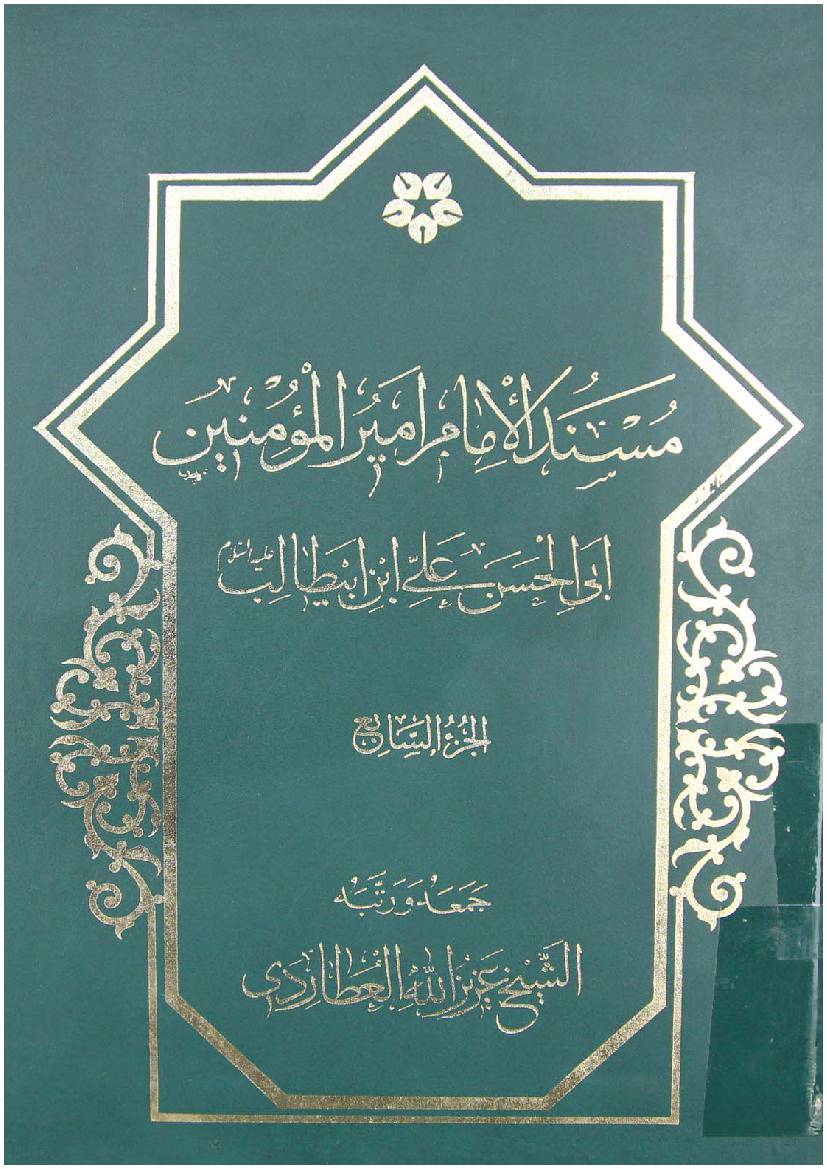 مُسْنَدُ الْإِمَامِ أَمِيرِ الْمُؤْمِنِينَ
أَبِي الْحَسَنِ عَلِيِّ ابْنِ أَبِيطَالِبٍ عليه السلام
الجُزْءُ السَّابِعُ
جَمَعَهُ وَرَتَّبَهُ
الشَّيْخُ عَزِيزُ اللهِ الْعُطَارِدِي